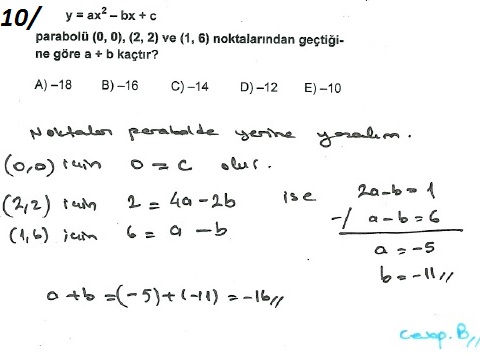 10/ y = ax² – bx + c
parabolü (0, 0), (2, 2) ve (1, 6) noktalarından geçtiği-
ne göre a + b kaçtır?
A) –18 B) –16 C) –14 D) –12 E) –10
Noktaları parabolde yerine yazalım.
(0,0) için 0 = c olur.
(2,2) için 2 = 4a – 2b ise 2a – b = 1
(1,6) için 6 = a – b –/ a – b = 6
a = –5
b = –11//
a + b = (–5) + (–11) = –16//
cevap. B//